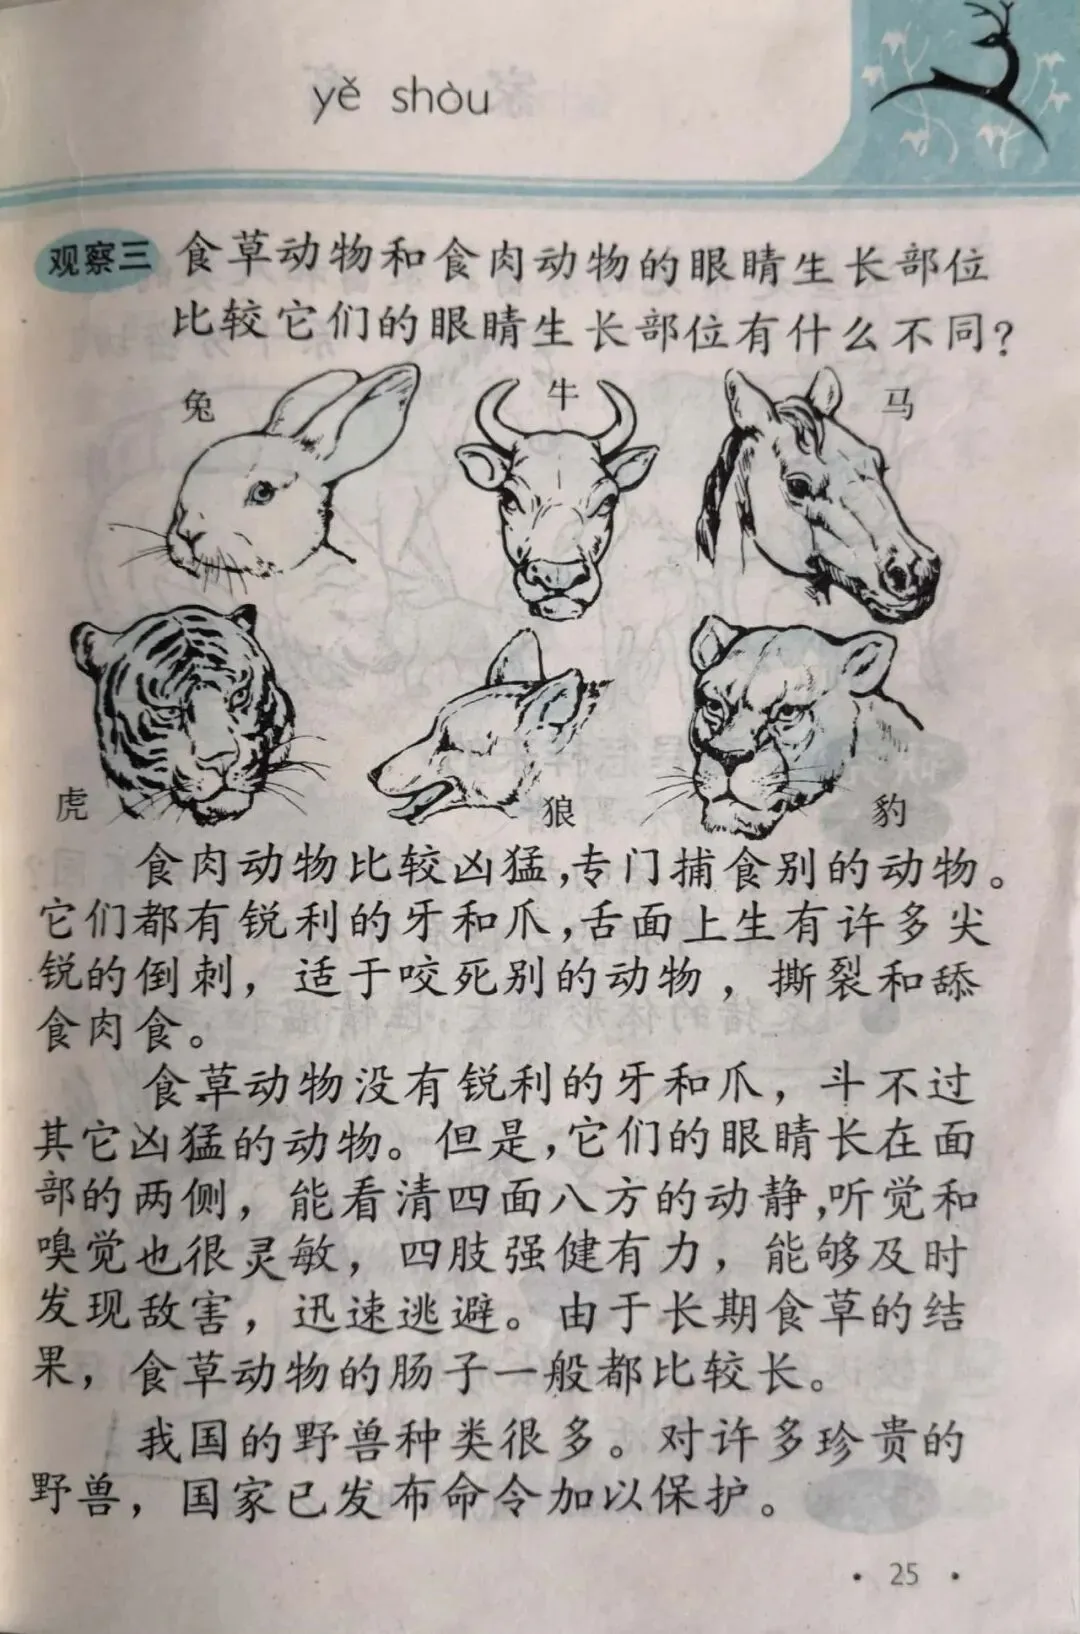 yě shòu
观察三 食草动物和食肉动物的眼睛生长部位
比较它们的眼睛生长部位有什么不同?
兔
牛
马
虎
狼
豹
食肉动物比较凶猛,专门捕食别的动物。
它们都有锐利的牙和爪,舌面上生有许多尖
锐的倒刺，适于咬死别的动物，撕裂和舔
食肉食。
食草动物没有锐利的牙和爪，斗不过
其它凶猛的动物。但是,它们的眼睛长在面
部的两侧，能看清四面八方的动静,听觉和
嗅觉也很灵敏，四肢强健有力，能够及时
发现敌害，迅速逃避。由于长期食草的结
果，食草动物的肠子一般都比较长。
我国的野兽种类很多。对许多珍贵的
野兽，国家已发布命令加以保护。
· 25 ·